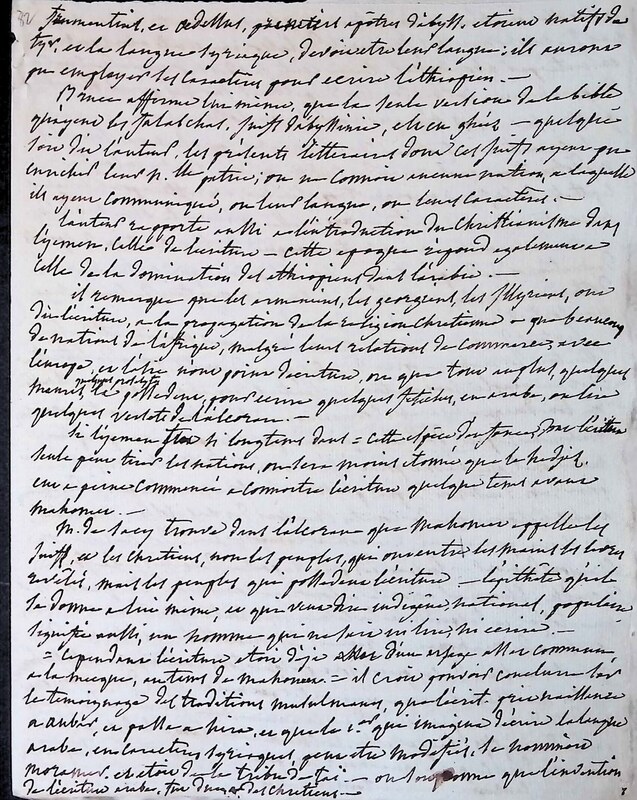 32
frumentius, et aedesius, premiers apôtres d'abyss. etoient natifs de
tyr, et la langue syriaque, devoit etre leur langue ; ils auront
pu employer les caractères pour ecrire l'ethiopien. –
Bruce affirme lui même, que la seule version de la bible
qu'ayent les falaschas, juifs d'abyssinie, est en ghéez – quelque
soit du l'auteur, les présents litteraires dont ces juifs ayent pu
enrichir leur n.lle patrie ; on ne connoit aucune nation, a laquelle
ils ayent communiqué, ou leur langue, ou leurs caractères. –
l'auteur rapporte aussi a l'introduction du christianisme dans
l'yemen, celle de l'ecriture – cette epoque répond egalement a
celle de la domination des ethiopiens dans l'arabie. –
il remarque que les armeniens, les georgiens, les illyriens, ont
du l'ecriture, a la propagation de la religion chretienne – que beaucoup
de nations de l'afrique, malgré leurs relations de commerce, avec
l'europe, et l'asie n'ont point d'ecriture, ou que tout au plus, quelques
quelques versets de l'alcoran –
si l'yemen si longtems dans = cette espèce d'enfance, dont l'ecriture
seule peut tirer les nations, on sera moins etonné que le hedjaz,
eut a peine commencé a connoitre l'ecriture quelque tems avant
mahomet. –
M. de Sacy trouve dans l'alcoran que Mahomet appelle les
juifs, et les chretiens, non les peuples, qui ont entre les mains les livres
revelés, mais les peuples qui possedent l'ecriture – l'epithète qu'il
se donne a lui même, et qui veut dire indigène, national, populaire
signifie aussi, un homme qui ne sait ni lire, ni ecrire. –
= Cependant l'ecriture etoit déjà d'un usage assez commun,
a la mecque, au tems de mahomet = il croit pouvoir conclure sur
le temoignage des traditions musulmanes, que l'ecrit. prit naissance
a anbar, et passa a hira, et que le 1.er qui imagina d'ecrire la langue
arabe, en caractères syriaques, peut etre modifiés, se nommoit
moramer, et etoit de la tribu de tai. – on soupçonne que l'invention
de l'ecriture arabe, fut due a des chretiens –